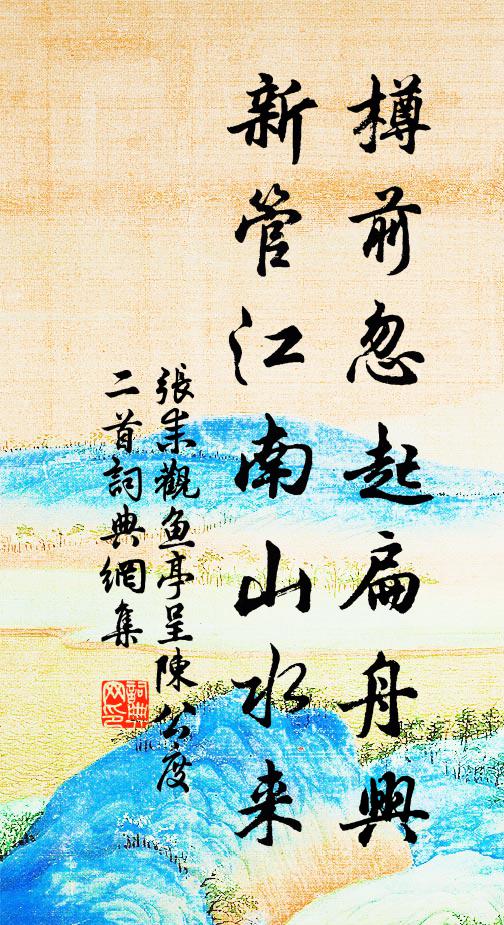 樽前忽起扁舟興
新管江南山水来
張耒觀魚亭呈陳公度
二首詞典網集
詞典网印